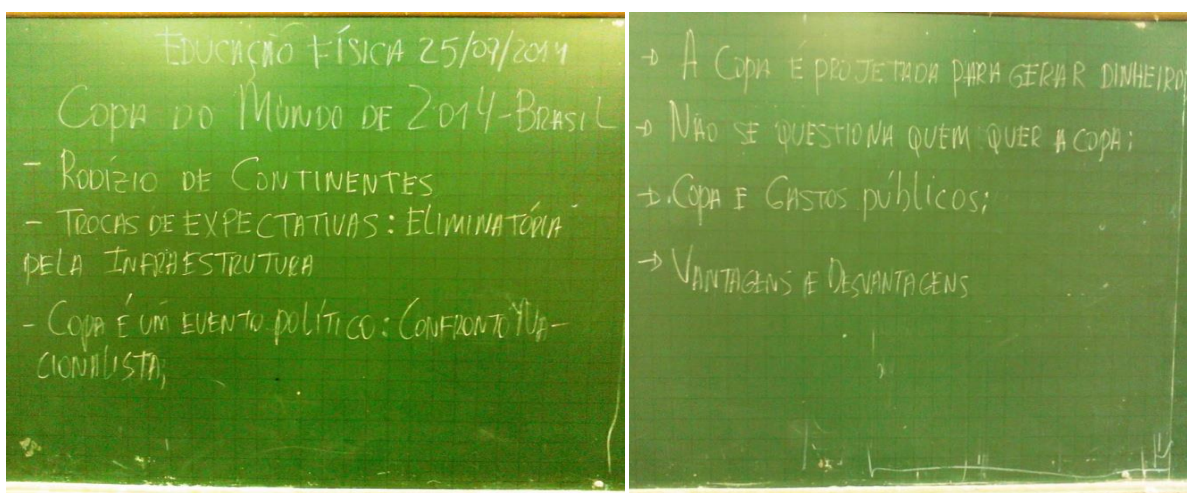 EDUCAÇÃO FÍSICA 25/09/2014
COPA DO MUNDO DE 2014-BRASIL
- RODÍZIO DE CONTINENTES
- TROCAS DE EXPECTATIVAS: ELIMINATÓRIA
PELA INFRAESTRUTURA
- COPA É UM EVENTO POLÍTICO: CONFRONTO NA-
CIONALISTA;
→ A COPA É PROJETADA PARA GERAR DINHEIRO;
→ NÃO SE QUESTIONA QUEM QUER A COPA;
→ COPA E GASTOS PÚBLICOS;
→ VANTAGENS E DESVANTAGENS